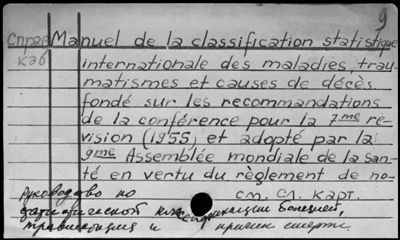 9
Справ Manuel de la classification statistique
каб internationale des maladies, trau-
matismes et causes de décès
fondé sur les recommandations
de la conférence pour la 7me re-
vision (1955) et adopté par la
9me Assemblée mondiale de la san-
té en vertu du règlement de no-
руководство по см. сл. карт.
статистической классификации болезней,
травматизма и причин смерти